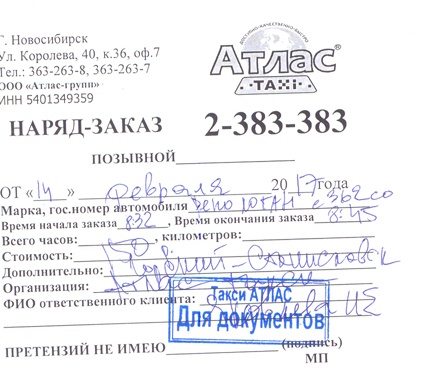 Г. Новосибирск
Ул. Королева, 40, к.36, оф.7
Тел.: 363-263-8, 363-263-7
ООО «Атлас-групп»
ИНН 5401349359
ДОСТУПНО-КАЧЕСТВЕННО-БЫСТРО
Атлас®
·TAXI·
НАРЯД-ЗАКАЗ 2-383-383
ПОЗЫВНОЙ
ОТ «14» февраля 2017года
Марка, гос.номер автомобиля рено логан е 362 со
Время начала заказа 8:32, Время окончания заказа 8:45
Всего часов: , километров:
Стоимость:
Дополнительно:
Организация:
ФИО ответственного клиента:
Такси АТЛАС
Для документов
ПРЕТЕНЗИЙ НЕ ИМЕЮ (подпись)
МП